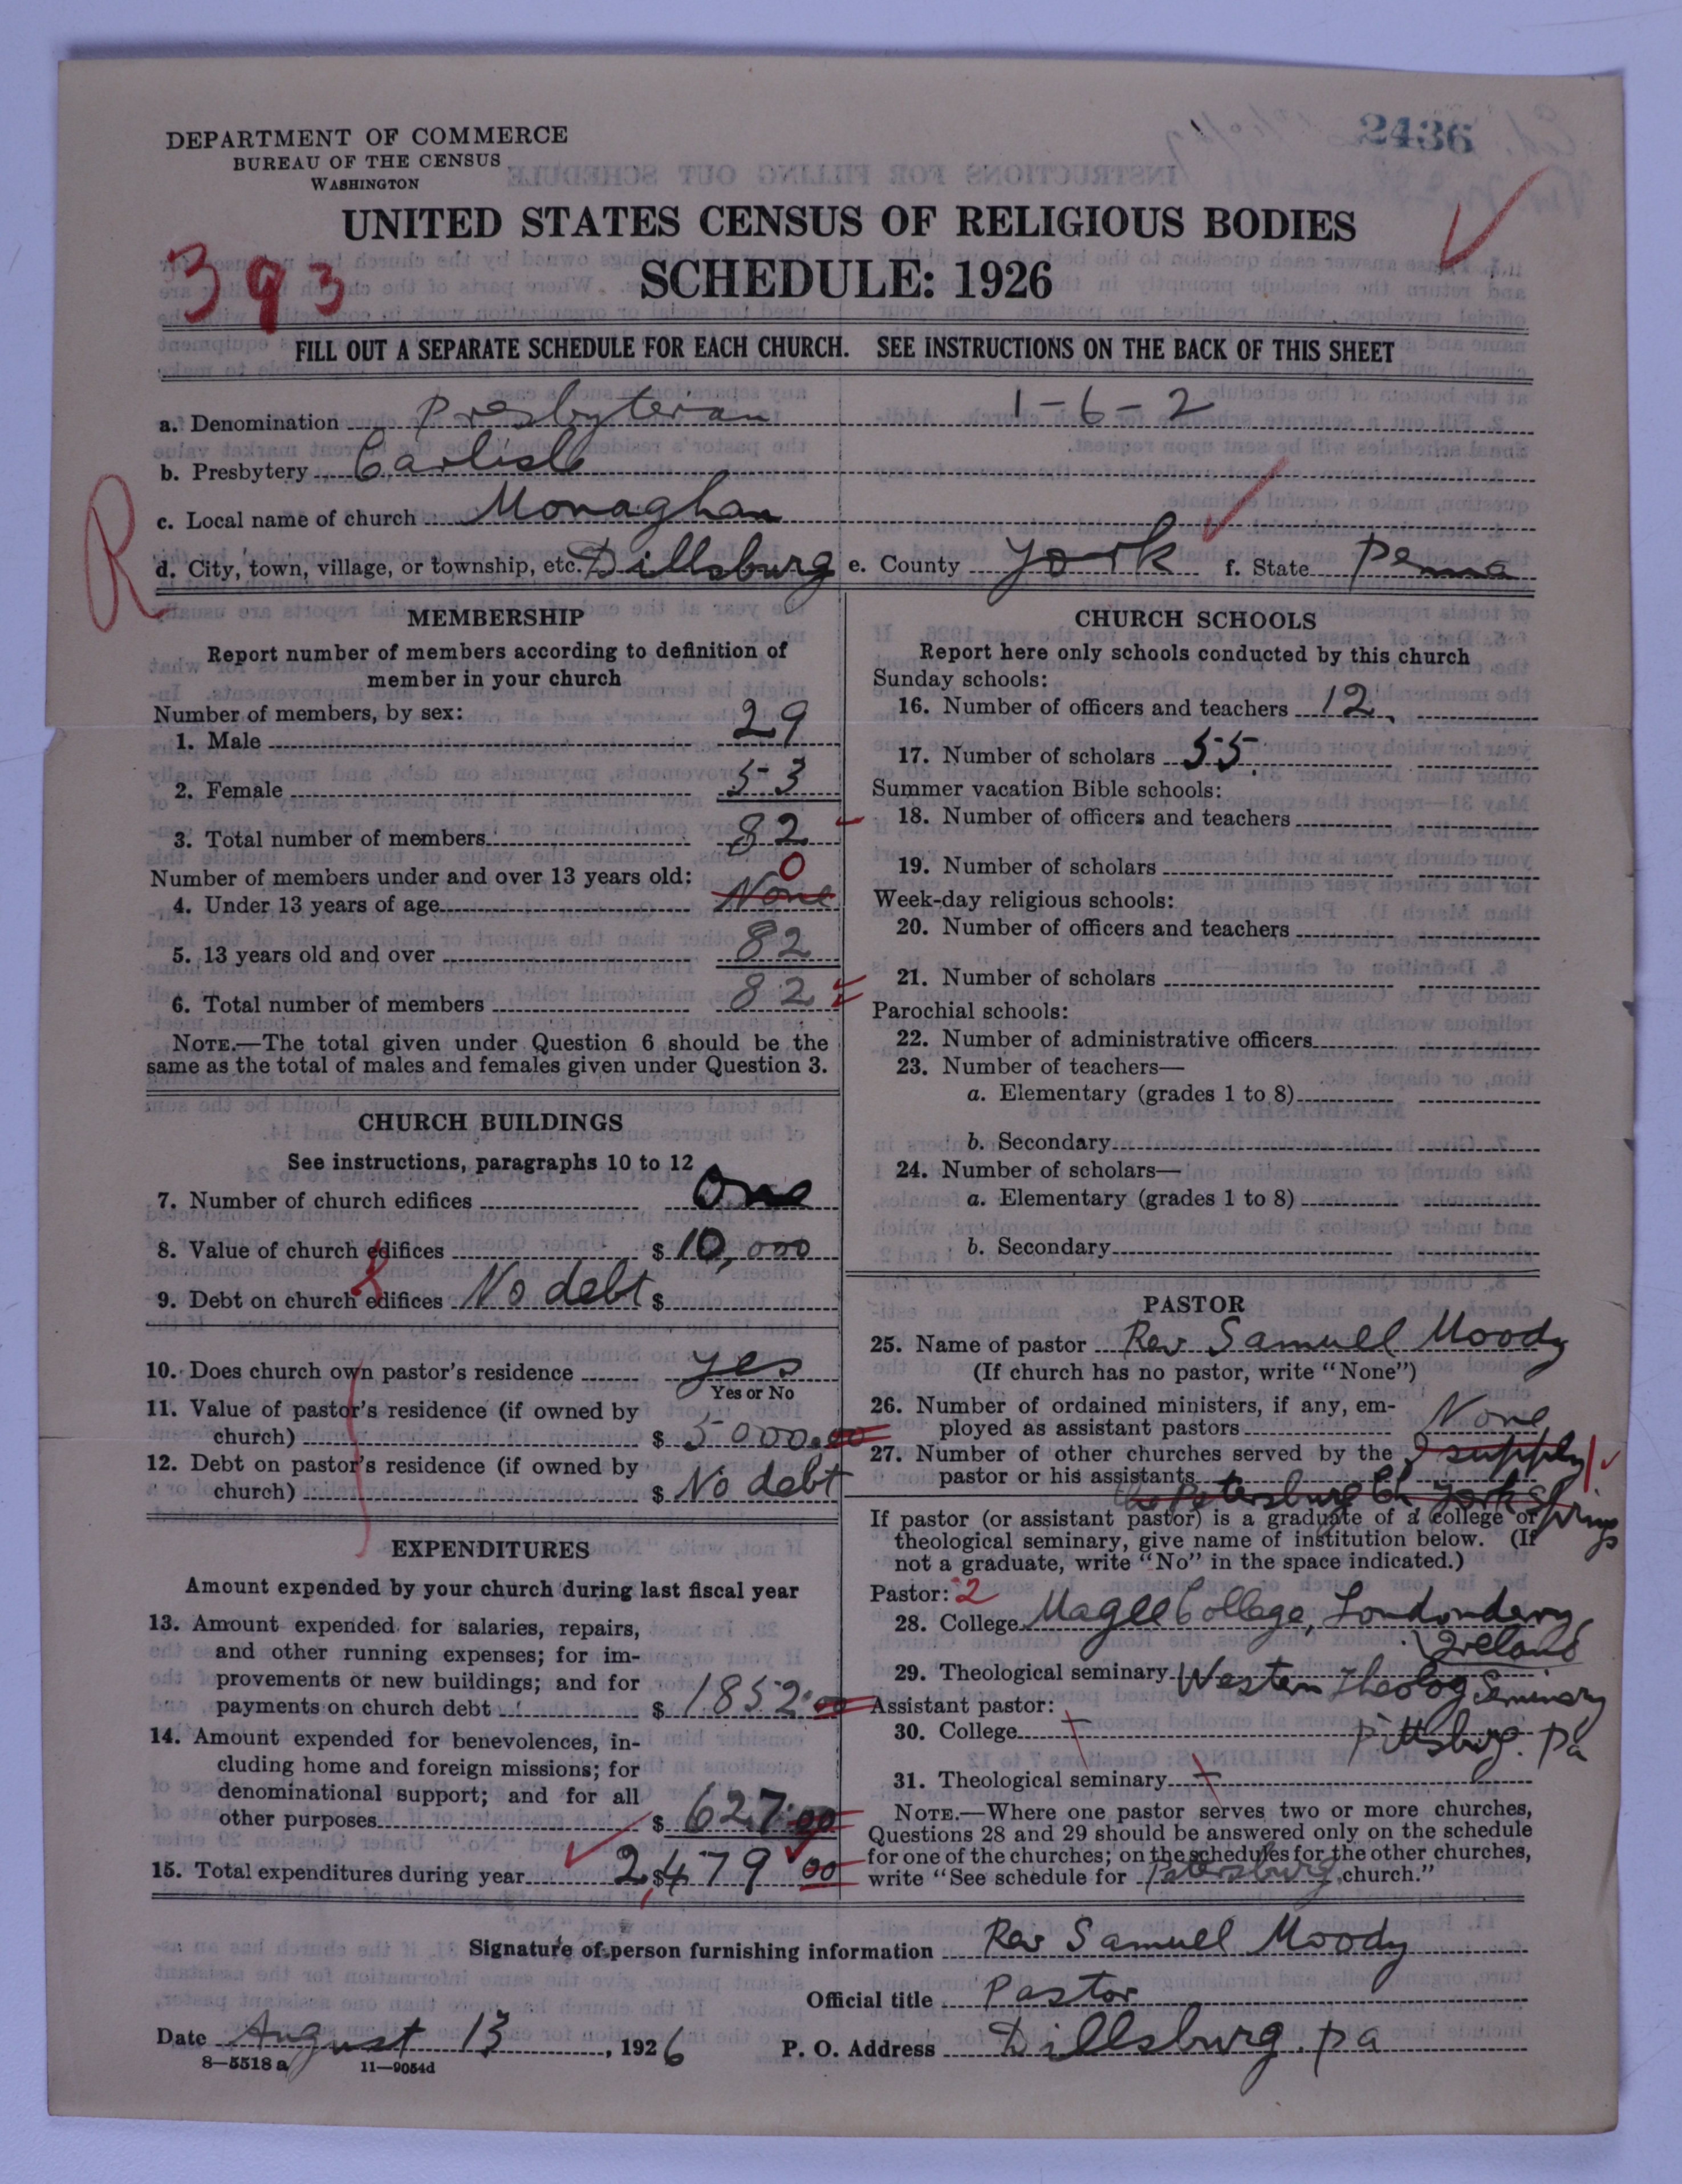 2436
DEPARTMENT OF COMMERCE
BUREAU OF THE CENSUS
WASHINGTON
UNITED STATES CENSUS OF RELIGIOUS BODIES
393
SCHEDULE: 1926
FILL OUT A SEPARATE SCHEDULE FOR EACH CHURCH. SEE INSTRUCTIONS ON THE BACK OF THIS SHEET
a. Denomination Presbyterian 1-6-2
b. Presbytery Carlisle
c. Local name of church Monaghan
R
d. City, town, village, or township, etc. Dillsburg e. County York f. State Penna
MEMBERSHIP
Report number of members according to definition of
member in your church
Number of members, by sex:
1. Male 29
2. Female 53
3. Total number of members 82
Number of members under and over 13 years old: 0
4. Under 13 years of age None
5. 13 years old and over 82
6. Total number of members 82
NOTE.—The total given under Question 6 should be the
same as the total of males and females given under Question 3.
CHURCH BUILDINGS
See instructions, paragraphs 10 to 12
7. Number of church edifices One
8. Value of church edifices $ 10,000
9. Debt on church edifices No debt $
10. Does church own pastor's residence yes
Yes or No
11. Value of pastor's residence (if owned by
church) $ 5000.00
12. Debt on pastor's residence (if owned by
church) $ No debt
EXPENDITURES
Amount expended by your church during last fiscal year
13. Amount expended for salaries, repairs,
and other running expenses; for im-
provements or new buildings; and for
payments on church debt $ 1852.00
14. Amount expended for benevolences, in-
cluding home and foreign missions; for
denominational support; and for all
other purposes $ 627.00
15. Total expenditures during year 2,$479 00
CHURCH SCHOOLS
Report here only schools conducted by this church
Sunday schools:
16. Number of officers and teachers 12.
17. Number of scholars 55.
Summer vacation Bible schools:
18. Number of officers and teachers
19. Number of scholars
Week-day religious schools:
20. Number of officers and teachers
21. Number of scholars
Parochial schools:
22. Number of administrative officers
23. Number of teachers—
a. Elementary (grades 1 to 8)
b. Secondary
24. Number of scholars—
a. Elementary (grades 1 to 8)
b. Secondary
PASTOR
25. Name of pastor Rev Samuel Moody
(If church has no pastor, write "None")
26. Number of ordained ministers, if any, em-
ployed as assistant pastors None
27. Number of other churches served by the I supply 1
pastor or his assistants the Petersburg Ch York Springs
If pastor (or assistant pastor) is a graduate of a college or
theological seminary, give name of institution below. (If
not a graduate, write "No" in the space indicated.)
Pastor: 2
28. College Magee College, Londonderry,
Ireland
29. Theological seminary Western Theolog Seminary
Assistant pastor:
30. College Pittsburg. Pa
31. Theological seminary
NOTE.—Where one pastor serves two or more churches,
Questions 28 and 29 should be answered only on the schedule
for one of the churches; on the schedules for the other churches,
write "See schedule for Petersburg church."
Signature of person furnishing information Rev Samuel Moody
Official title Pastor
Date August 13, 1926 P. O. Address Dillsburg. Pa
8—5518 a 11—9054d